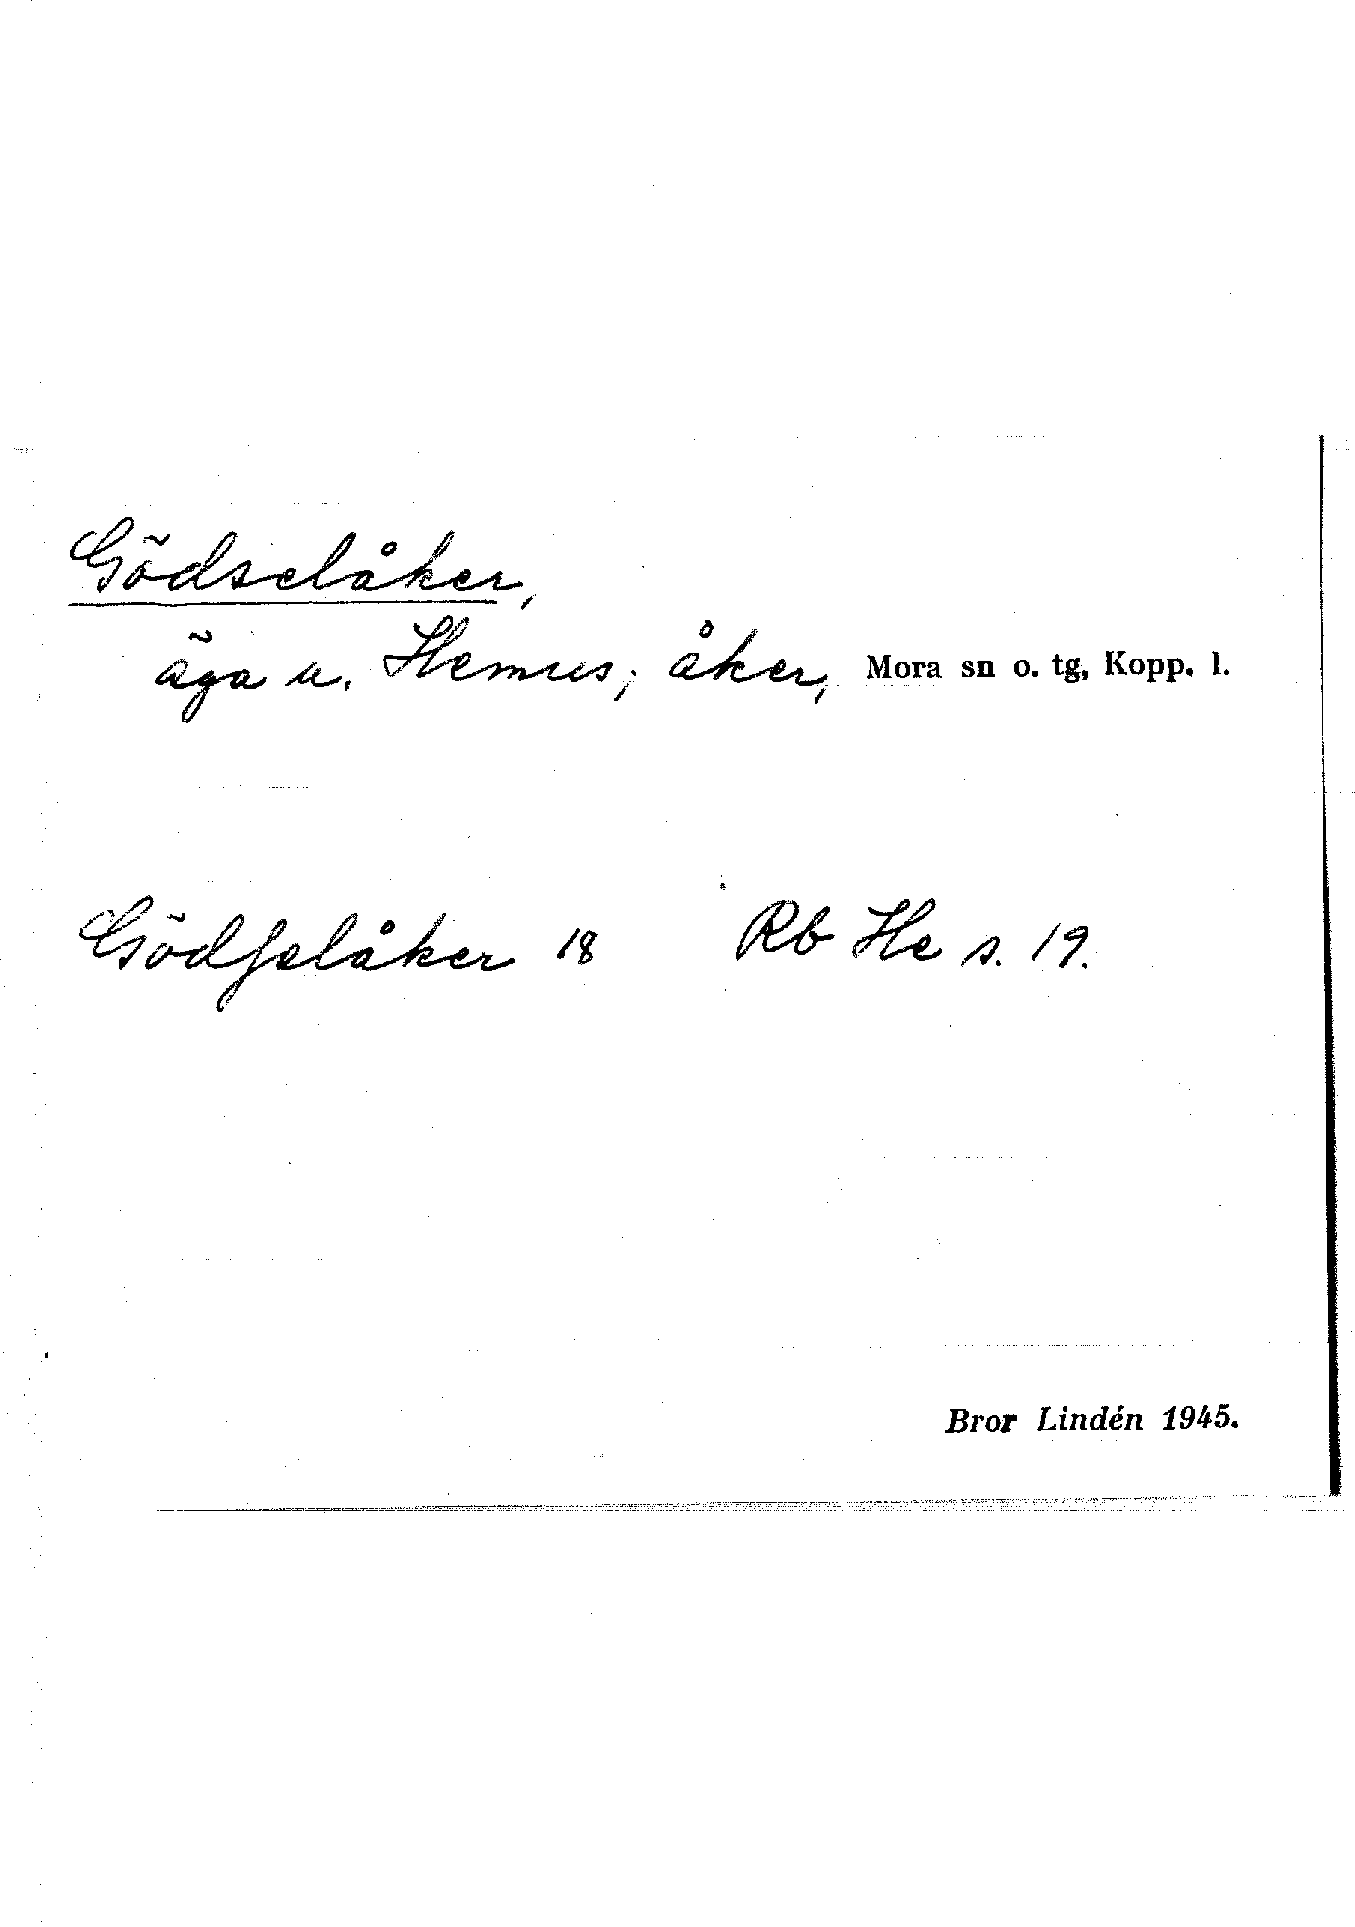 Gödselåker,
äga u. Hemus; åker, Mora sn o. tg, Kopp. l.
Gödſelåker 18 Rb He s. 19.
Bror Lindén 1945.